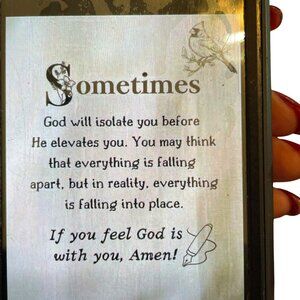 Sometimes
God will isolate you before
He elevates you. You may think
that everything is falling
apart, but in reality, everything
is falling into place.
If you feel God is
with you, Amen!